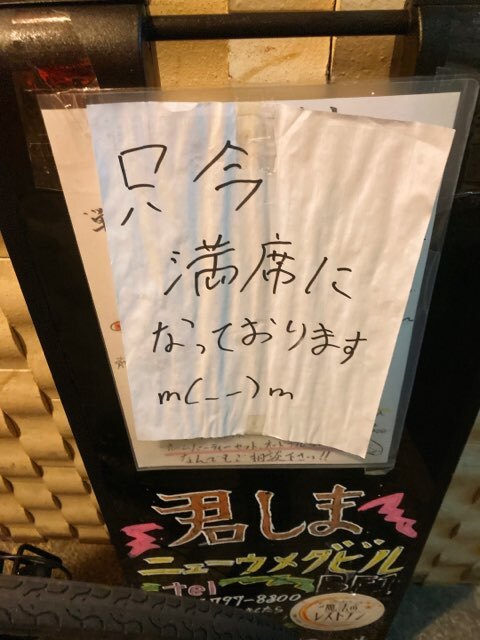 只今
満席に
なっております
m(__)m
なんでもご相談下さい!!
君しま
ニューウメダビル
tel BF1
797-8800
魔法の
レストラン